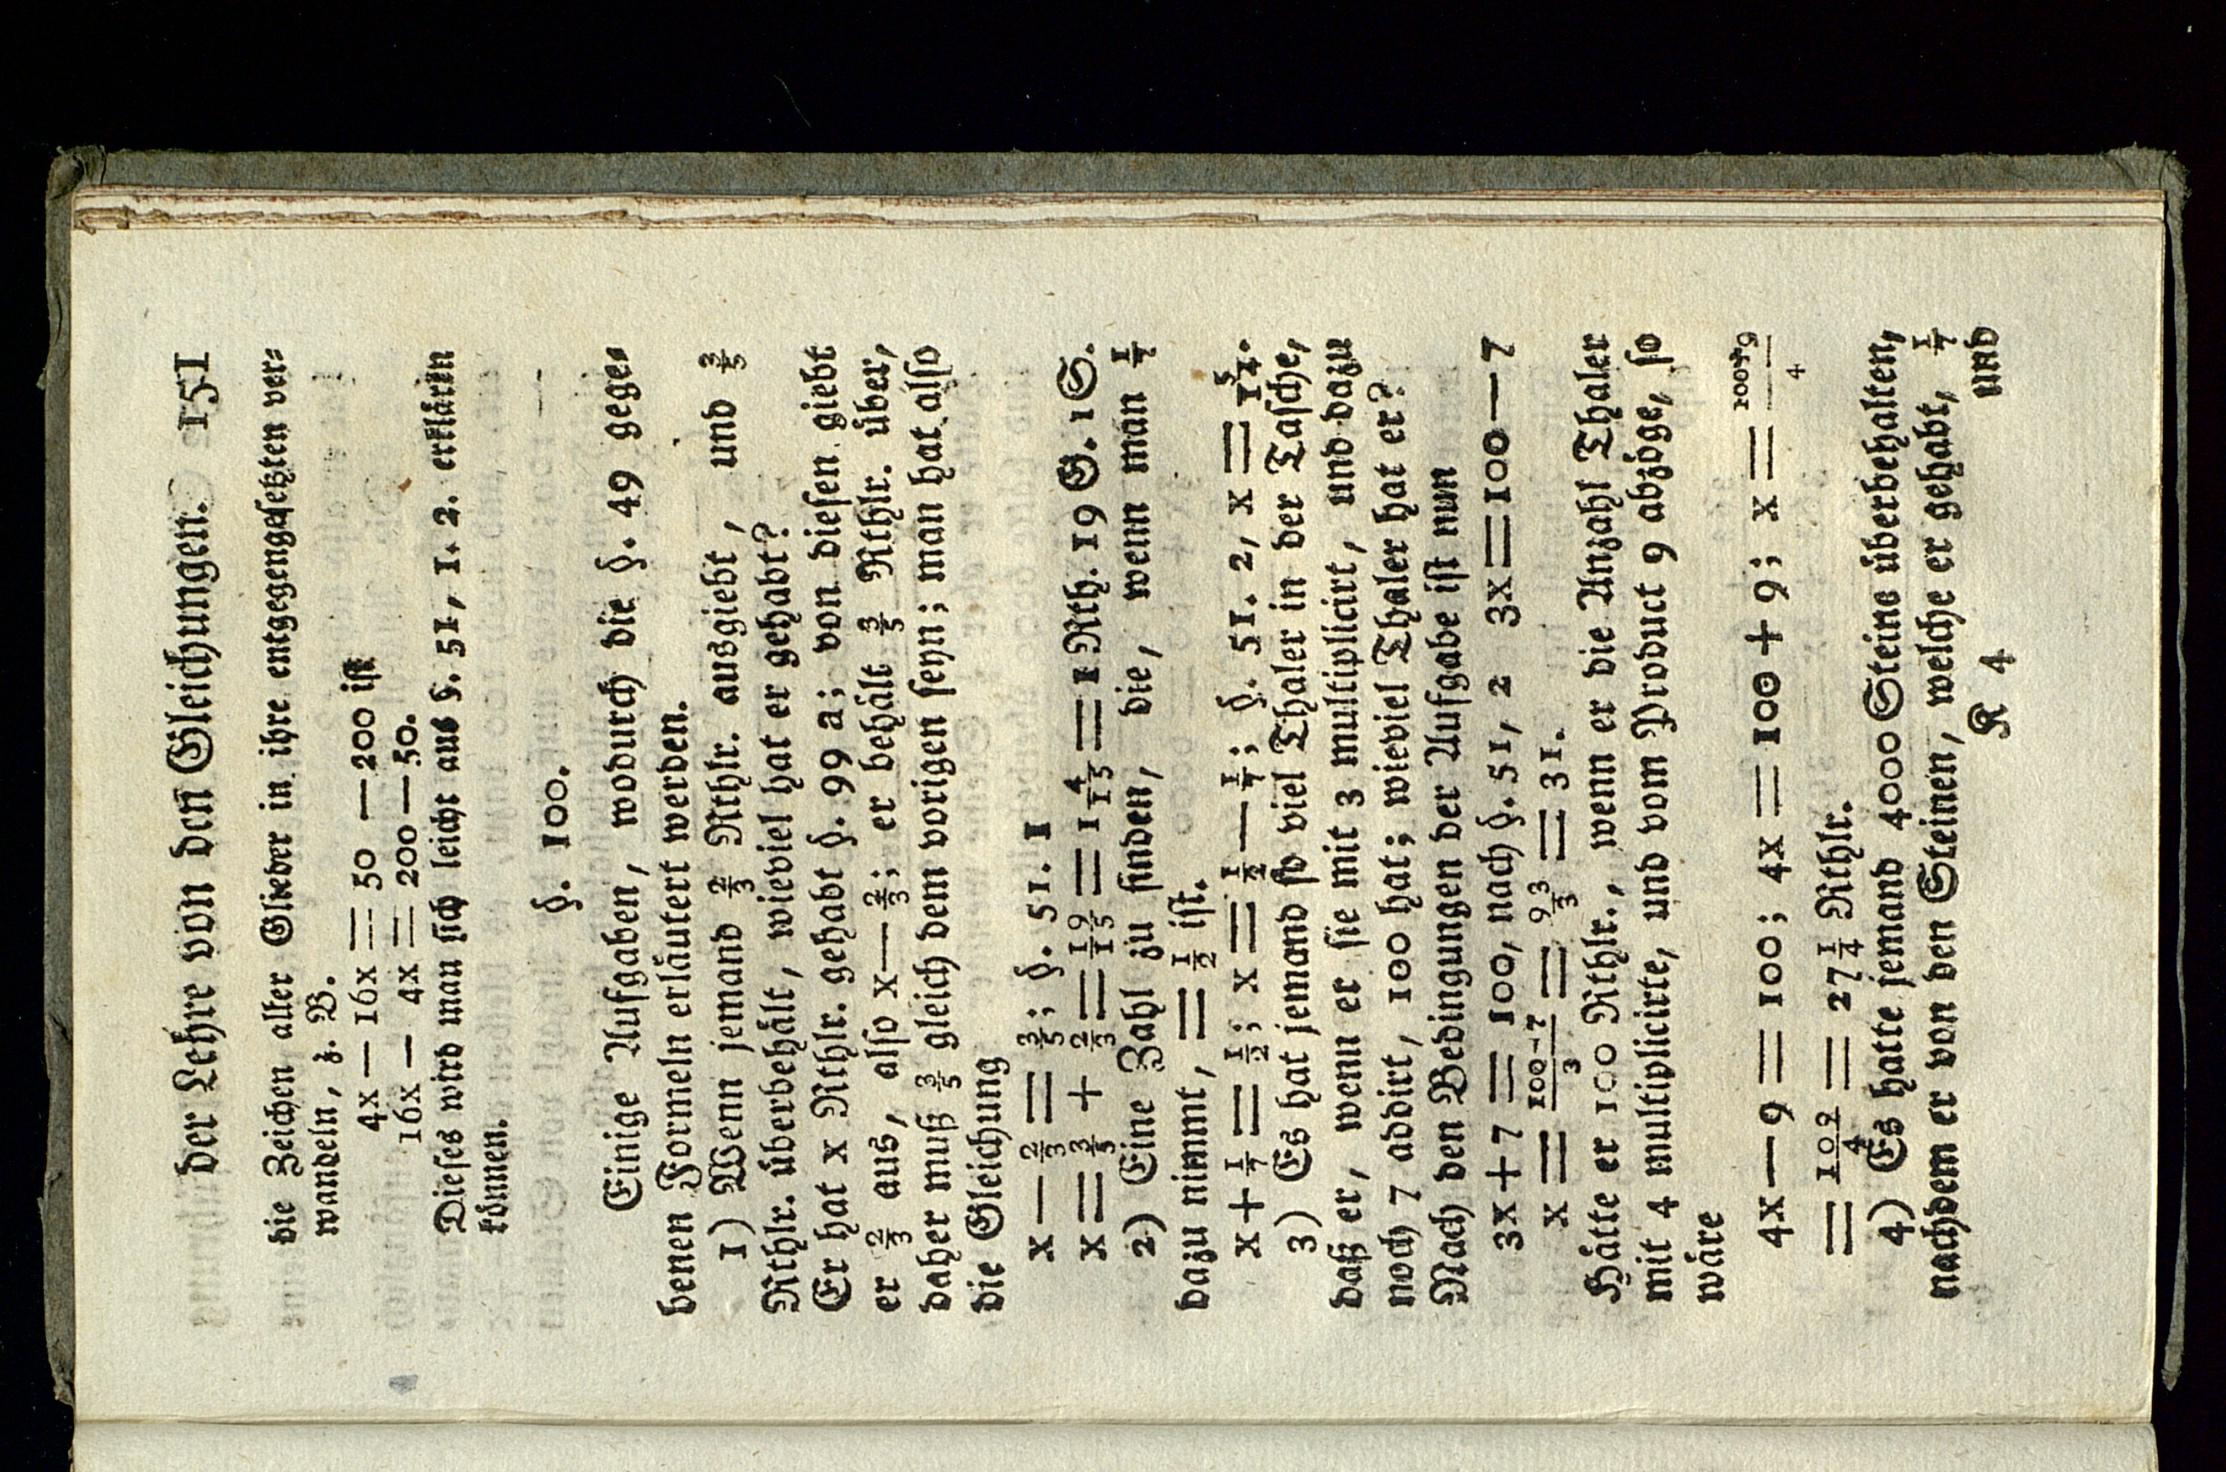 der Lehre von den Gleichungen. 151
die Zeichen aller Glieder in ihre entgegengesetzten ver⸗
wandeln, z. B.
4x — 16x = 50 — 200 ist
16x — 4x = 200 — 50.
Dieses wird man sich leicht aus §. 51, 1. 2. erklären
können.
§. 100.
Einige Aufgaben, wodurch die §. 49 gege⸗
benen Formeln erläutert werden.
1) Wenn jemand ⅔ Rthlr. ausgiebt, und ⅗
Rthlr. überbehält, wieviel hat er gehabt?
Er hat x Rthlr. gehabt §. 99 a; von diesen giebt
er ⅔ aus, also x — ⅔; er behält ⅗ Rthlr. über,
daher muß ⅗ gleich dem vorigen seyn; man hat also
die Gleichung
x — ⅔ = ⅗; §. 51. 1
x = ⅗ + ⅔ = 19/15 = 1 4/15 = 1 Rth. 19 G. 1 S.
2) Eine Zahl zu finden, die, wenn man 1/7
dazu nimmt, = ½ ist.
x + 1/7 = ½; x = ½ — 1/7; §. 51. 2, x = 5/14.
3) Es hat jemand so viel Thaler in der Tasche,
daß er, wenn er sie mit 3 multiplicirt, und dazu
noch 7 addirt, 100 hat; wieviel Thaler hat er?
Nach den Bedingungen der Aufgabe ist nun
3x + 7 = 100, nach §. 51, 2 3x = 100 — 7
x = (100-7)/3 = 93/3 = 31.
Hätte er 100 Rthlr., wenn er die Anzahl Thaler
mit 4 multiplicirte, und vom Product 9 abzöge, so
wäre
4x — 9 = 100; 4x = 100 + 9; x = (100+9)/4
= 109/4 = 27¼ Rthlr.
4) Es hatte jemand 4000 Steine überbehalten,
nachdem er von den Steinen, welche er gehabt, 1/7
K 4 und